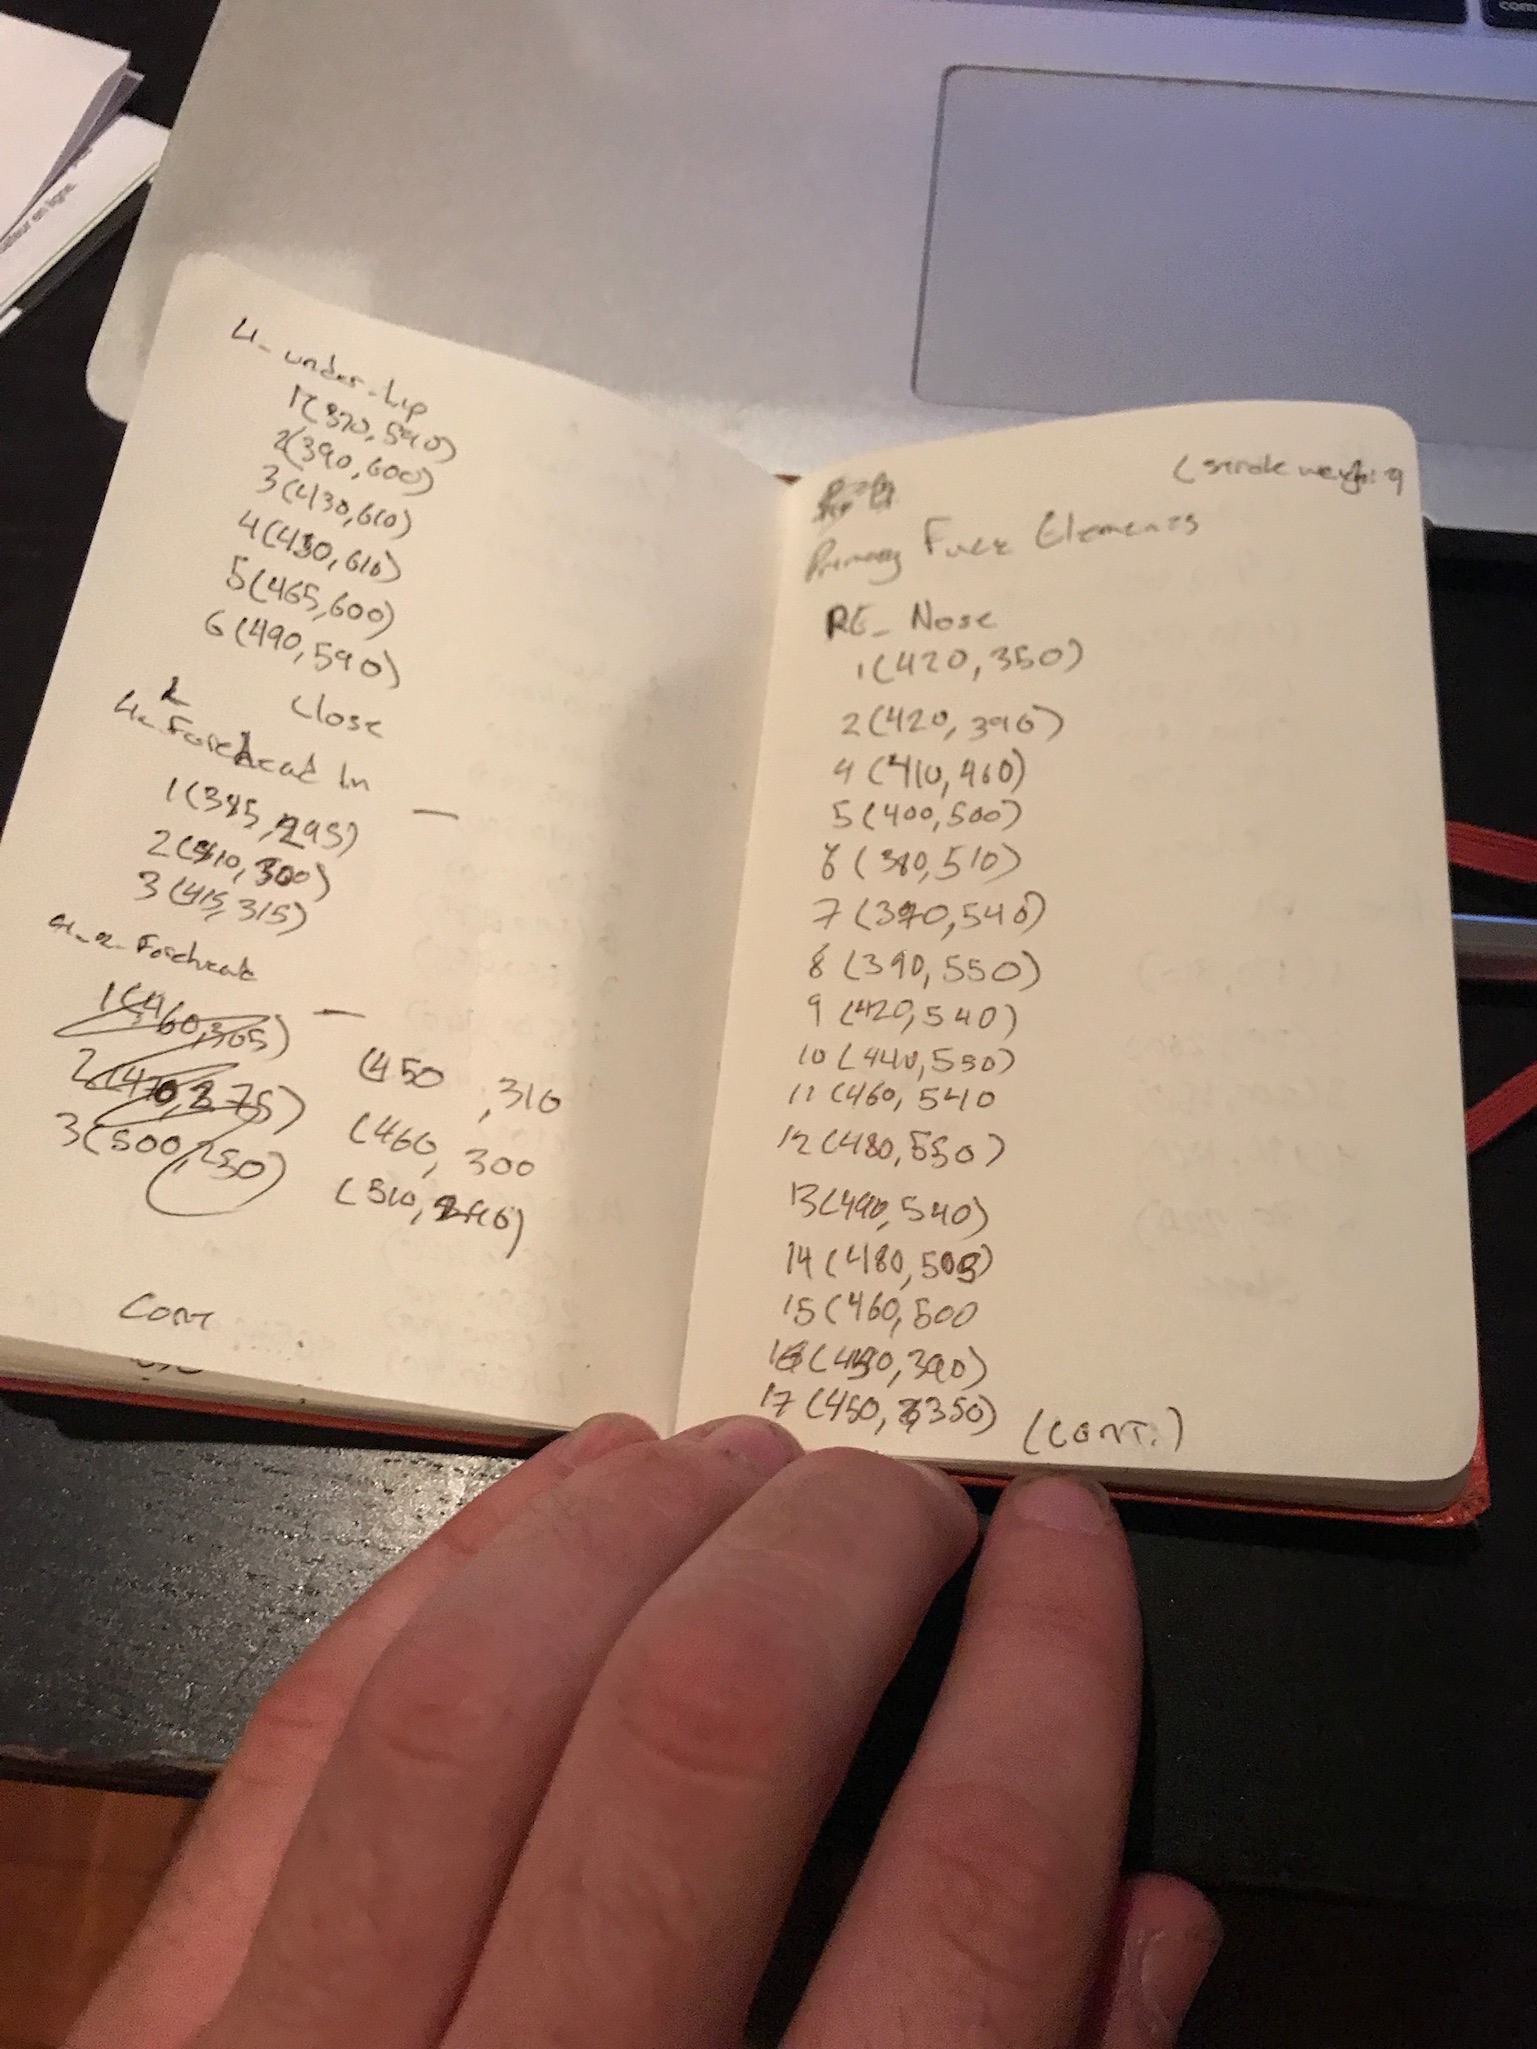 under-Lip
1(370,590)
2(390,600)
3(430,610)
4(430,610)
5(465,600)
6(490,590)
Close
Forehead Ln —
1(385,295)
2(410,300)
3(415,315)
Forehead
1(460,305) —
2(470,275)
3(500,250)
(450 ,310
(460, 300
(510,
Cont
(stroke weight 9
Primary Face Elements
RE_ Nose
1(420,350)
2(420,390)
4(410,460)
5(400,500)
6(380,510)
7(370,540)
8(390,550)
9(420,540)
10(440,550)
11(460,540
12(480,550)
13(490,540)
14(480,505)
15(460,500
16(450,390)
17(450,350)
(CONT.)
com